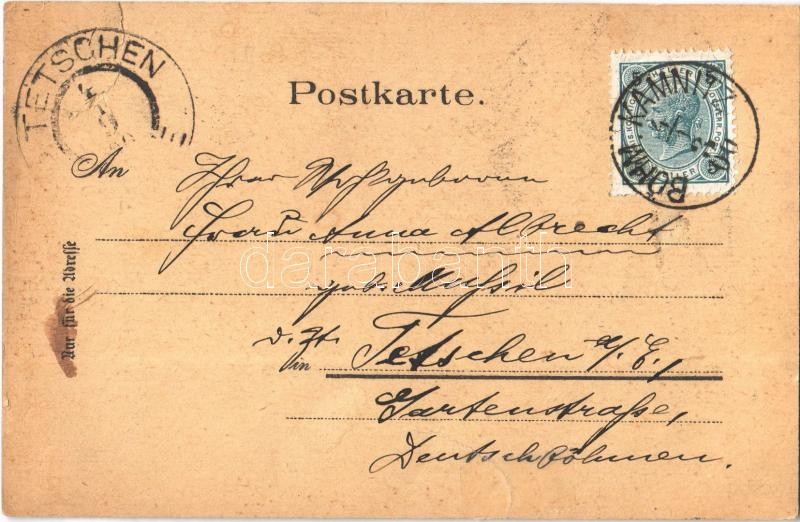 TETSCHEN
Postkarte.
BÖHM. KAMNITZ
An
Ihrer Wohlgeboren
Frau Anna Albrecht
darabanth
geb.
d. Zt.
in Tetschen a/E,
Gartenstraße,
Deutschböhmen.
Nur für die Adresse